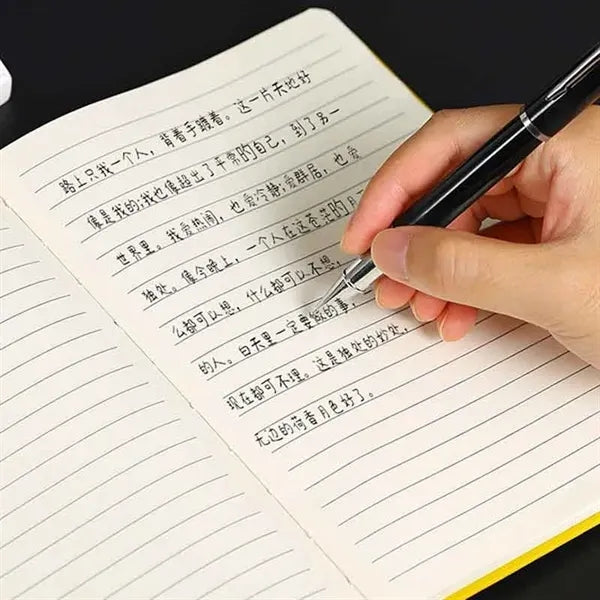 路上只我一个人，背着手踱着。这一片天地好
像是我的;我也像超出了平常的自己，到了另一
世界里。我爱热闹，也爱冷静;爱群居，也爱
独处。像今晚上，一个人在这苍茫的月
么都可以想，什么都可以不想，
的人。白天里一定要做的事，
现在都可不理。这是独处的妙处，
无边的荷香月色好了。